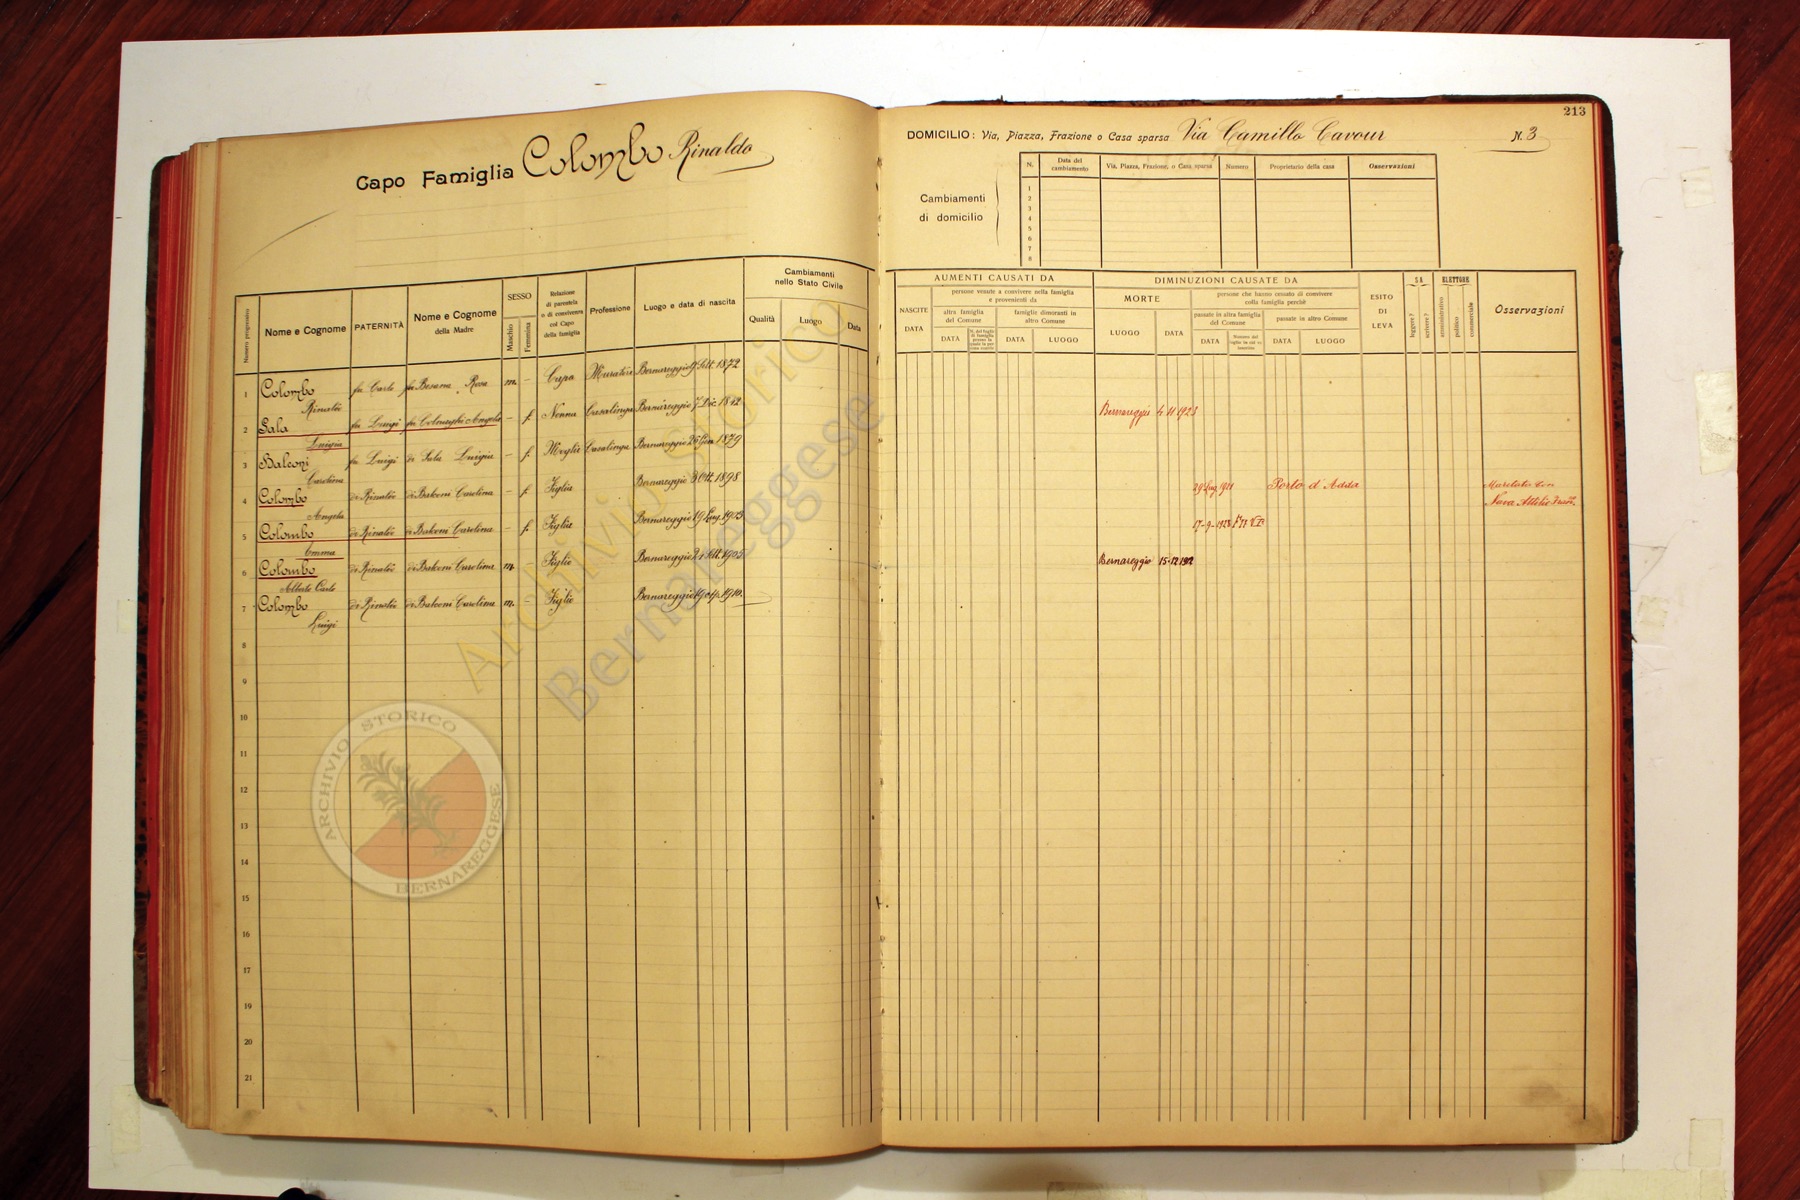 213
Capo Famiglia Colombo Rinaldo
DOMICILIO: Via, Piazza, Frazione o Casa sparsa Via Camillo Cavour N. 3
Cambiamenti di domicilio
N. Data del cambiamento Via, Piazza, Frazione, o Casa sparsa Numero Proprietario della casa Osservazioni
1
2
3
4
5
6
7
8
Numero progressivo Nome e Cognome PATERNITÀ Nome e Cognome della Madre SESSO Maschio Femmina Relazione di parentela o di convivenza col Capo della famiglia Professione Luogo e data di nascita Cambiamenti nello Stato Civile Qualità Luogo Data
AUMENTI CAUSATI DA
NASCITE DATA
persone venute a convivere nella famiglia e provenienti da
altra famiglia del Comune DATA
famiglie dimoranti in altro Comune DATA LUOGO
DIMINUZIONI CAUSATE DA
MORTE LUOGO DATA
persone che hanno cessato di convivere colla famiglia perchè
passate in altra famiglia del Comune DATA
passate in altro Comune DATA LUOGO
ESITO DI LEVA
SA leggere? scrivere?
ELETTORE amministrativo politico commerciale
Osservazioni
1 Colombo Rinaldo fu Carlo fu Besana Rosa m. – Capo Muratore Bernareggio Sett. 1872
2 Sala Luigia fu Luigi fu Angela – f. Nonna Casalinga Bernareggio 7 Dic. Bernareggio 4 11 1923
3 Balconi Carolina fu Luigi di Sala Luigia – f. Moglie Casalinga Bernareggio 26 1879
4 Colombo Angela di Rinaldo di Balconi Carolina – f. Figlia Bernareggio 3 Ott. 1898 29 Lug. 1921 Porto d'Adda Maritata con Nava Attilio
5 Colombo Emma di Rinaldo di Balconi Carolina – f. Figlia Bernareggio 19 Lug. 1903 17-9-1928
6 Colombo Alberto Carlo di Rinaldo di Balconi Carolina m. – Figlio Bernareggio Sett. 1905 Bernareggio 15-12
7 Colombo Luigi di Rinaldo di Balconi Carolina m. – Figlio Bernareggio 1910.
8
9
10
11
12
13
14
15
16
17
18
19
20
21
Archivio Storico
Bernareggese
ARCHIVIO STORICO
BERNAREGGESE